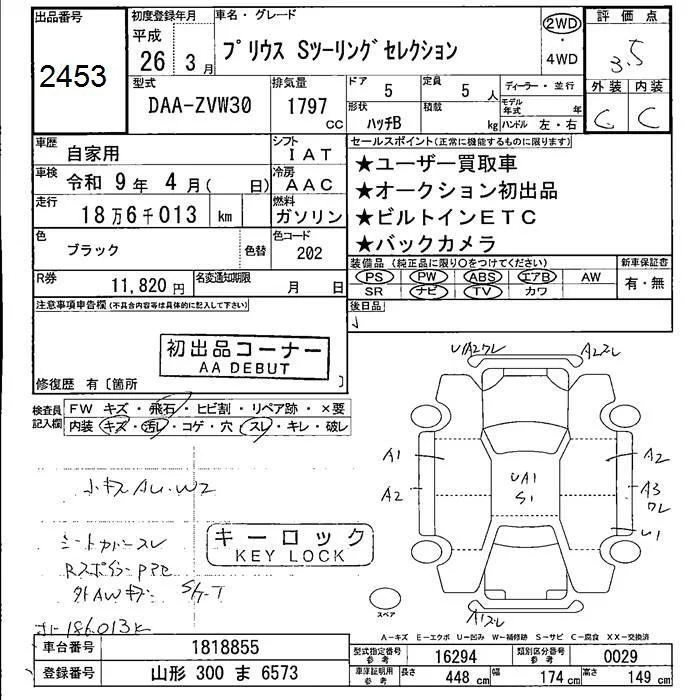 出品番号
2453
初度登録年月
平成
26 3 月
車名・グレード
プリウス Sツーリングセレクション
2WD
・
4WD
評価点
3.5
外装 内装
C C
型式
DAA-ZVW30
排気量
1797
CC
ドア
5
定員
5 人
形状
ハッチB
積載
kg
ディーラー・並行
モデル年式 年
ハンドル 左・右
車歴
自家用
シフト
IAT
車検
令和 9年 4月( 日)
冷房
AAC
走行
18万6千013 km
燃料
ガソリン
色
ブラック
色替
色コード
202
R券
11,820 円
名変通知期限
月 日
セールスポイント(正常に機能するものに限ります)
★ユーザー買取車
★オークション初出品
★ビルトインETC
★バックカメラ
装備品 (純正品に限り○をつけてください)
PS PW ABS エアB AW
SR ナビ TV カワ
新車保証書
有・無
後日品
注意事項申告欄(不具合内容等は具体的に記入して下さい)
初出品コーナー
AA DEBUT
修復歴 有〔箇所 〕
検査員
記入欄
FW キズ・飛石・ヒビ割・リペア跡・×要
内装・キズ・汚レ・コゲ・穴・スレ・キレ・破レ
小キズAU.W2
シートカバースレ
キーロック
KEY LOCK
外AWキズ
186,013K
UA2ワレ
A2スレ
A1
A2
A2
A3
ワレ
UA1
S1
U1
A1スレ
スペア
A-キズ E-エクボ U-凹み W-補修跡 S-サビ C-腐食 XX-交換済
車台番号
1818855
登録番号
山形 300 ま 6573
型式指定番号
参考
16294
類別区分番号
参考
0029
車庫証明用
参考
長さ
448 cm
幅
174 cm
高さ
149 cm